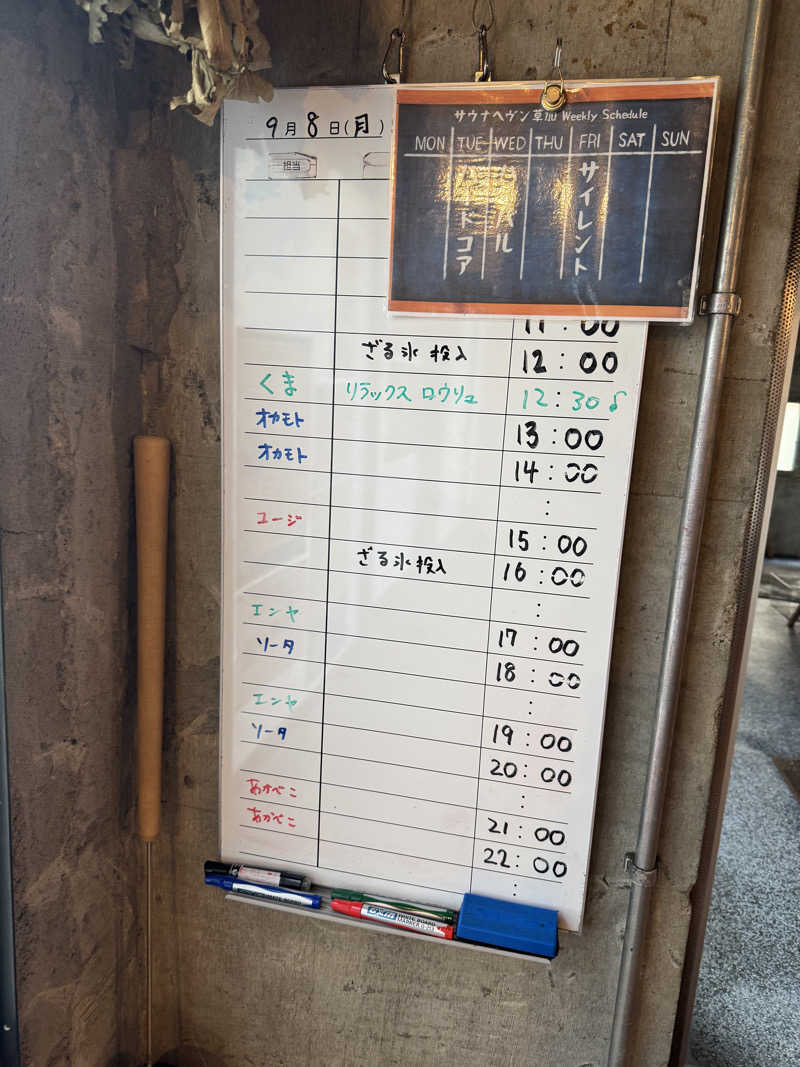 9月8日(月)
担当
サウナヘヴン草加 Weekly Schedule
MON TUE WED THU FRI SAT SUN
ドコア
バル
サイレント
11:00
ざる氷投入 12:00
くま リラックスロウリュ 12:30
オカモト 13:00
オカモト 14:00
:
ユージ 15:00
ざる氷投入 16:00
:
エンヤ 17:00
ソータ 18:00
:
エンヤ 19:00
ソータ 20:00
:
あかべこ 21:00
あかべこ 22:00
:
WHITE BOARD MARKER